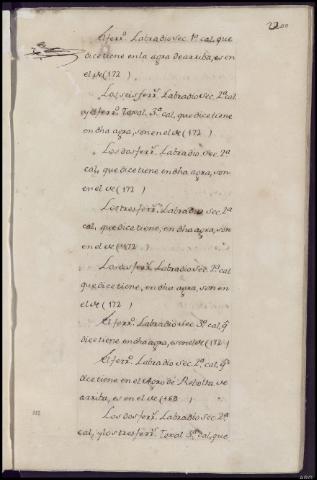 2200
El ferr.º Labradio sec. 1ª cal, que
dice tiene en la agra de arriba, es en
el vº (172 )
Los seis ferr.º Labradio sec. 2ª cal
y el ferr.º Toxal, 3ª cal, que dice tiene
en dha agra, son en el vº (172 )
Los dos ferr.º Labradio, sec. 2ª
cal, que dice tiene en dha agra, son
en el vº (172 )
Los tres ferr.º Labradio sec. 2ª
cal, que dice tiene, en dha agra, son
en el vº (172 )
Los dos ferr.º Labradio sec. 2ª cal
que dice tiene, en dha agra, son en
el vº (172 )
El ferr.º Labradio sec 3ª cal, q̃
dice tiene en dha agra, es en el vº (172 )
El ferr.º Labradio sec. 2ª cal, q̃
dice tiene en el Agro de Rebolta de
arriba, es en el vº (168 )
Los dos ferr.º Labradio sec. 2ª
cal, y los tres ferr.º Toxal 3ª cal, que